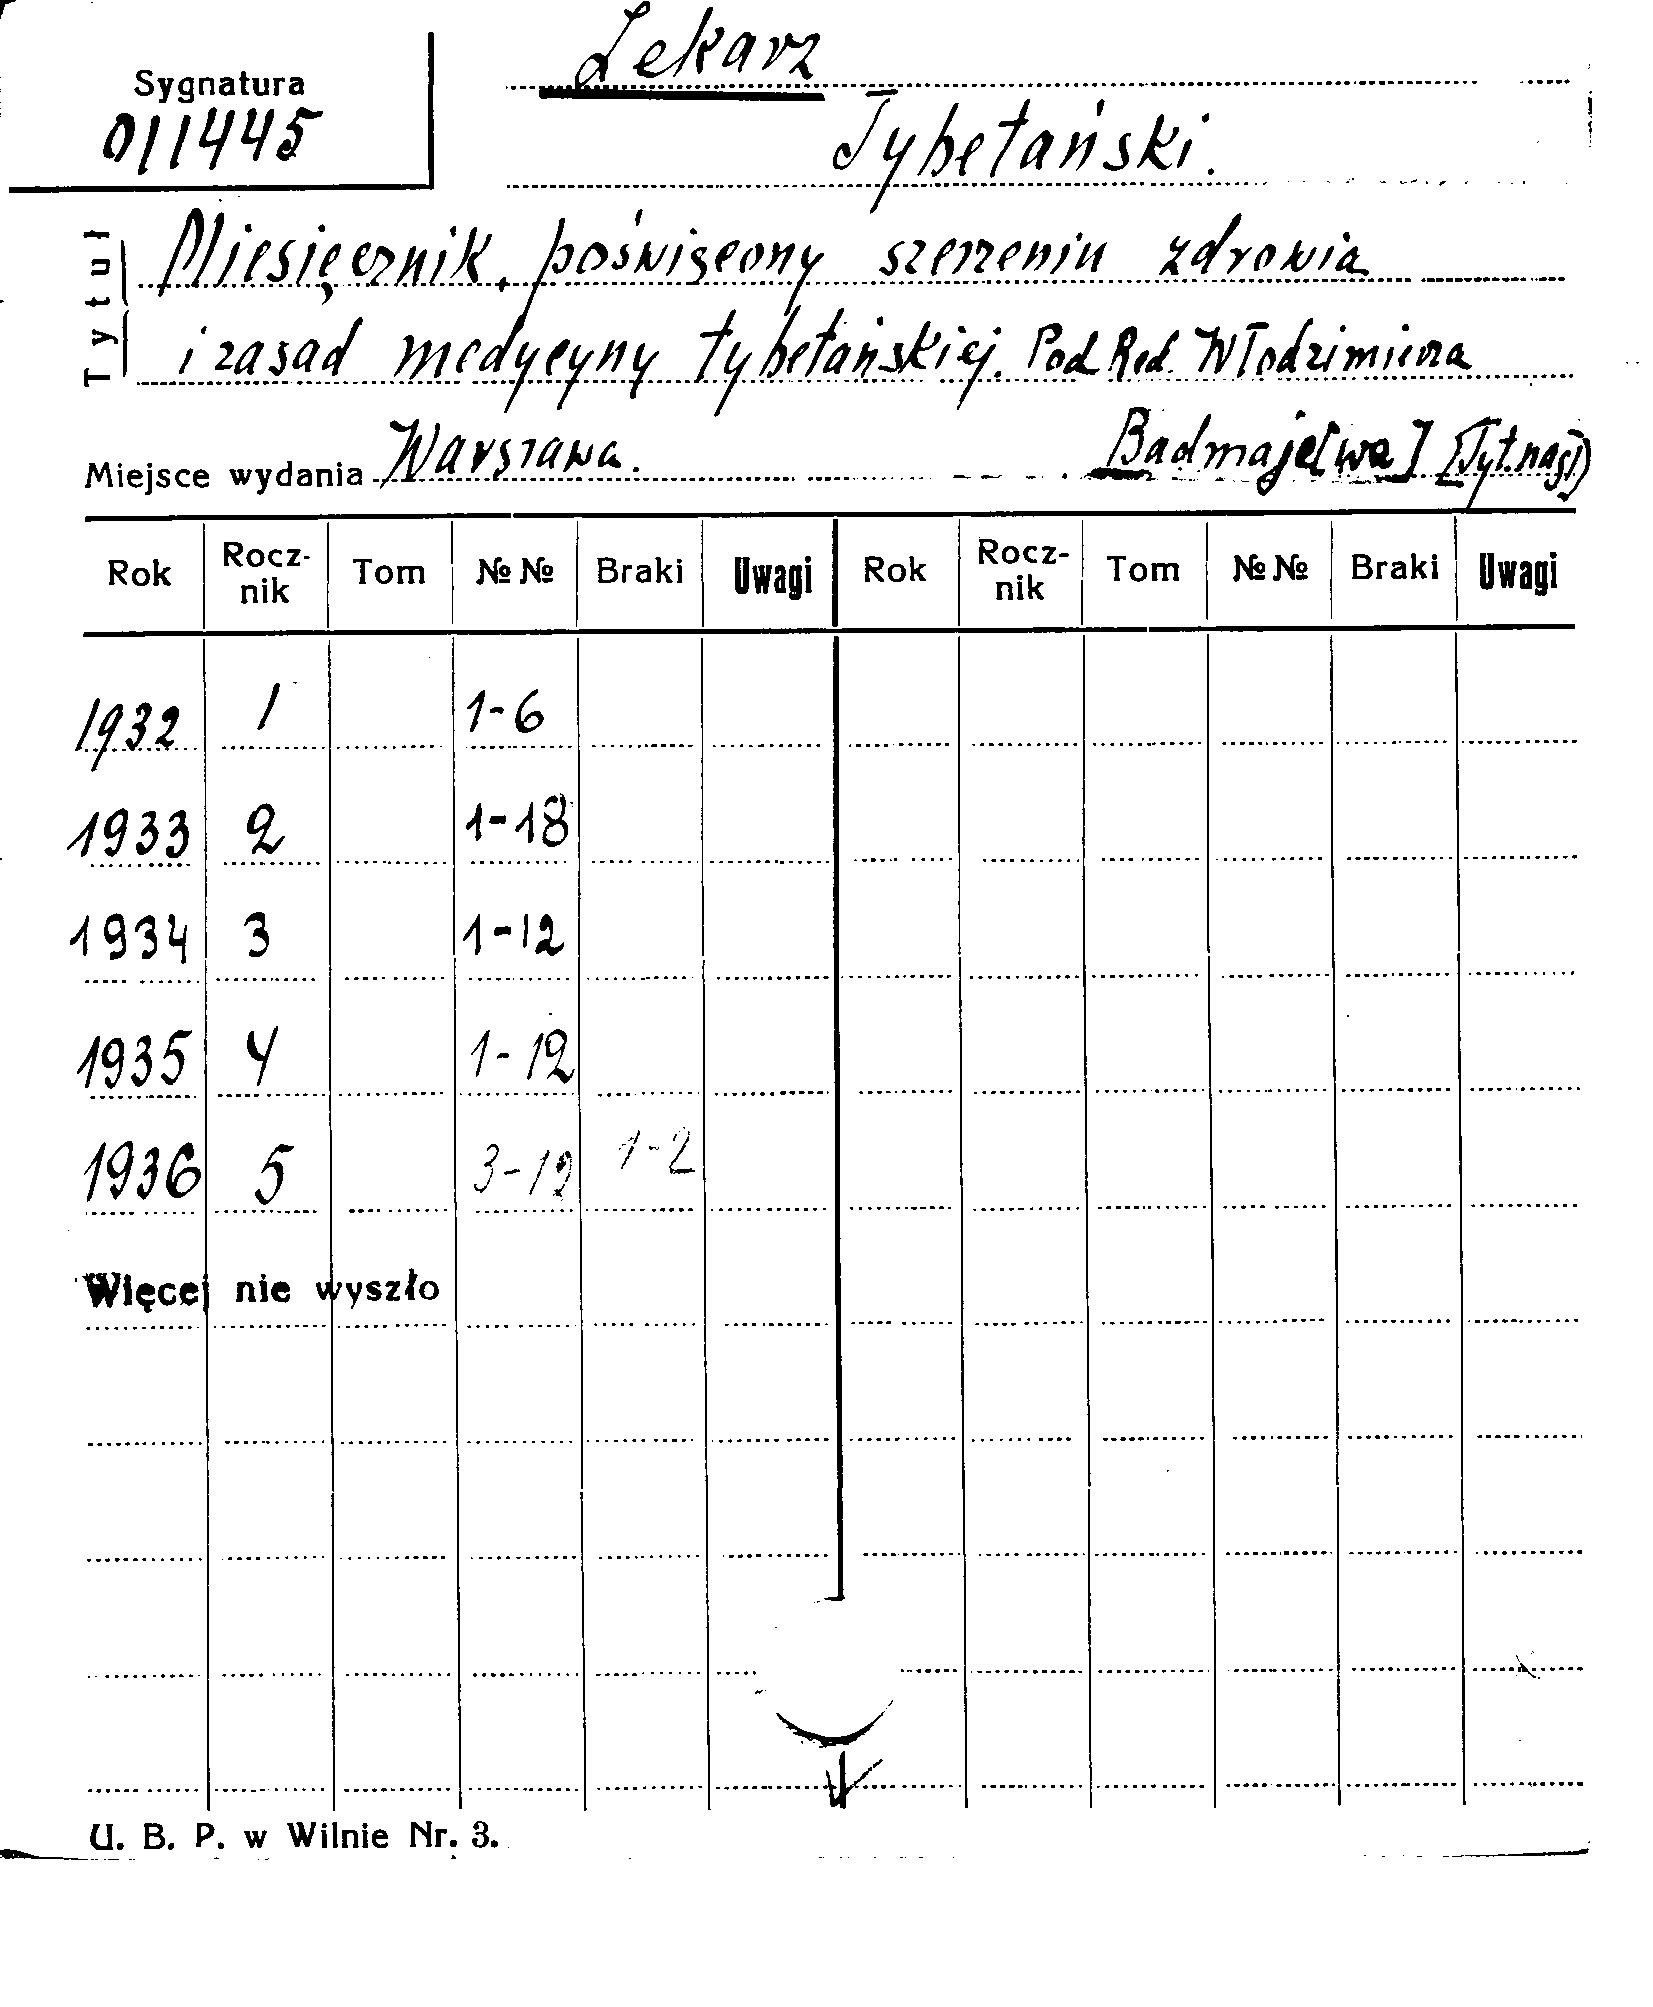 Lekarz
Sygnatura
011445
Tybetański.
Tytuł
Miesięcznik, poświęcony szerzeniu zdrowia
i zasad medycyny tybetańskiej. Pod Red. Włodzimierza
Miejsce wydania Warszawa. Badmaje[wa] [Tyt. nagł]
Rok Rocz-nik Tom №№ Braki Uwagi Rok Rocz-nik Tom №№ Braki Uwagi
1932 1 1-6
1933 2 1-18
1934 3 1-12
1935 4 1-12
1936 5 3-12 1-2
Więcej nie wyszło
U. B. P. w Wilnie Nr. 3.